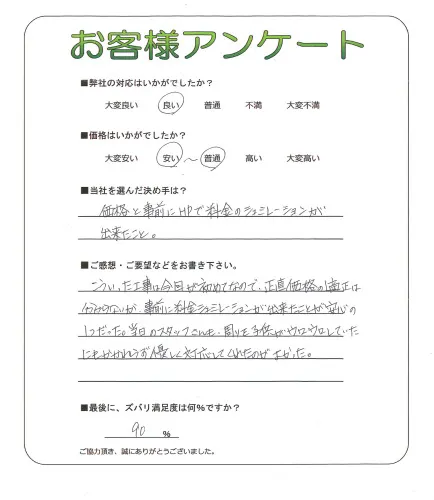 お客様アンケート
■弊社の対応はいかがでしたか？
大変良い 良い 普通 不満 大変不満
■価格はいかがでしたか？
大変安い 安い ～ 普通 高い 大変高い
■当社を選んだ決め手は？
価格と事前にHPで料金のシュミレーションが
出来たこと。
■ご感想・ご要望などをお書き下さい。
こういった工事は今回が初めてなので、正直価格の適正は
分からないが、事前に料金シュミレーションが出来たことが安心の
1つだった。当日のスタッフさんも、周りを子供がウロウロしていた
にもかかわらず優しく対応してくれたのがよかった。
■最後に、ズバリ満足度は何%ですか？
90 %
ご協力頂き、誠にありがとうございました。